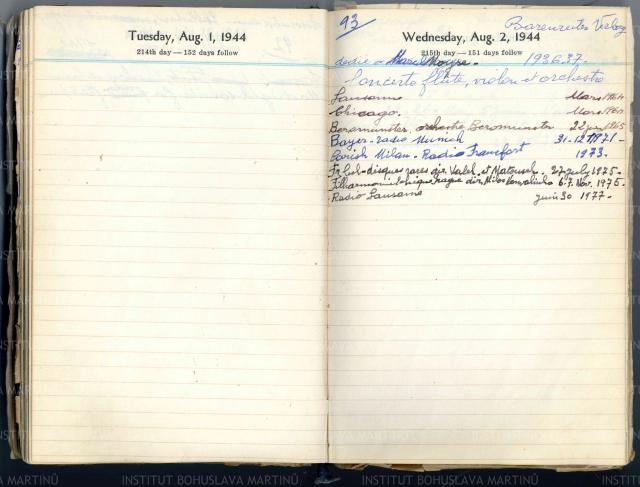 Tuesday, Aug. 1, 1944
214th day — 152 days follow
93
Barenreiter Verlag
Wednesday, Aug. 2, 1944
215th day — 151 days follow
dedié a Marcel Moyse - 1936.37.
Concerto flute, violon et orchestre
Lausanne Mars 1964
Chicago. Mars 1964
Beromünster, orchestre Beromünster 22 1965
Bayer-Radio Munich 31-12 1971-
Radio Francfort 1973.
disques rares dir. Valek et Matousek. 27 july 1975-
dir. Milos Konvalinka 6.7. Nov. 1975-
Radio Lausanne juin 30 1977-
INSTITUT BOHUSLAVA MARTINŮ
INSTITUT BOHUSLAVA MARTINŮ